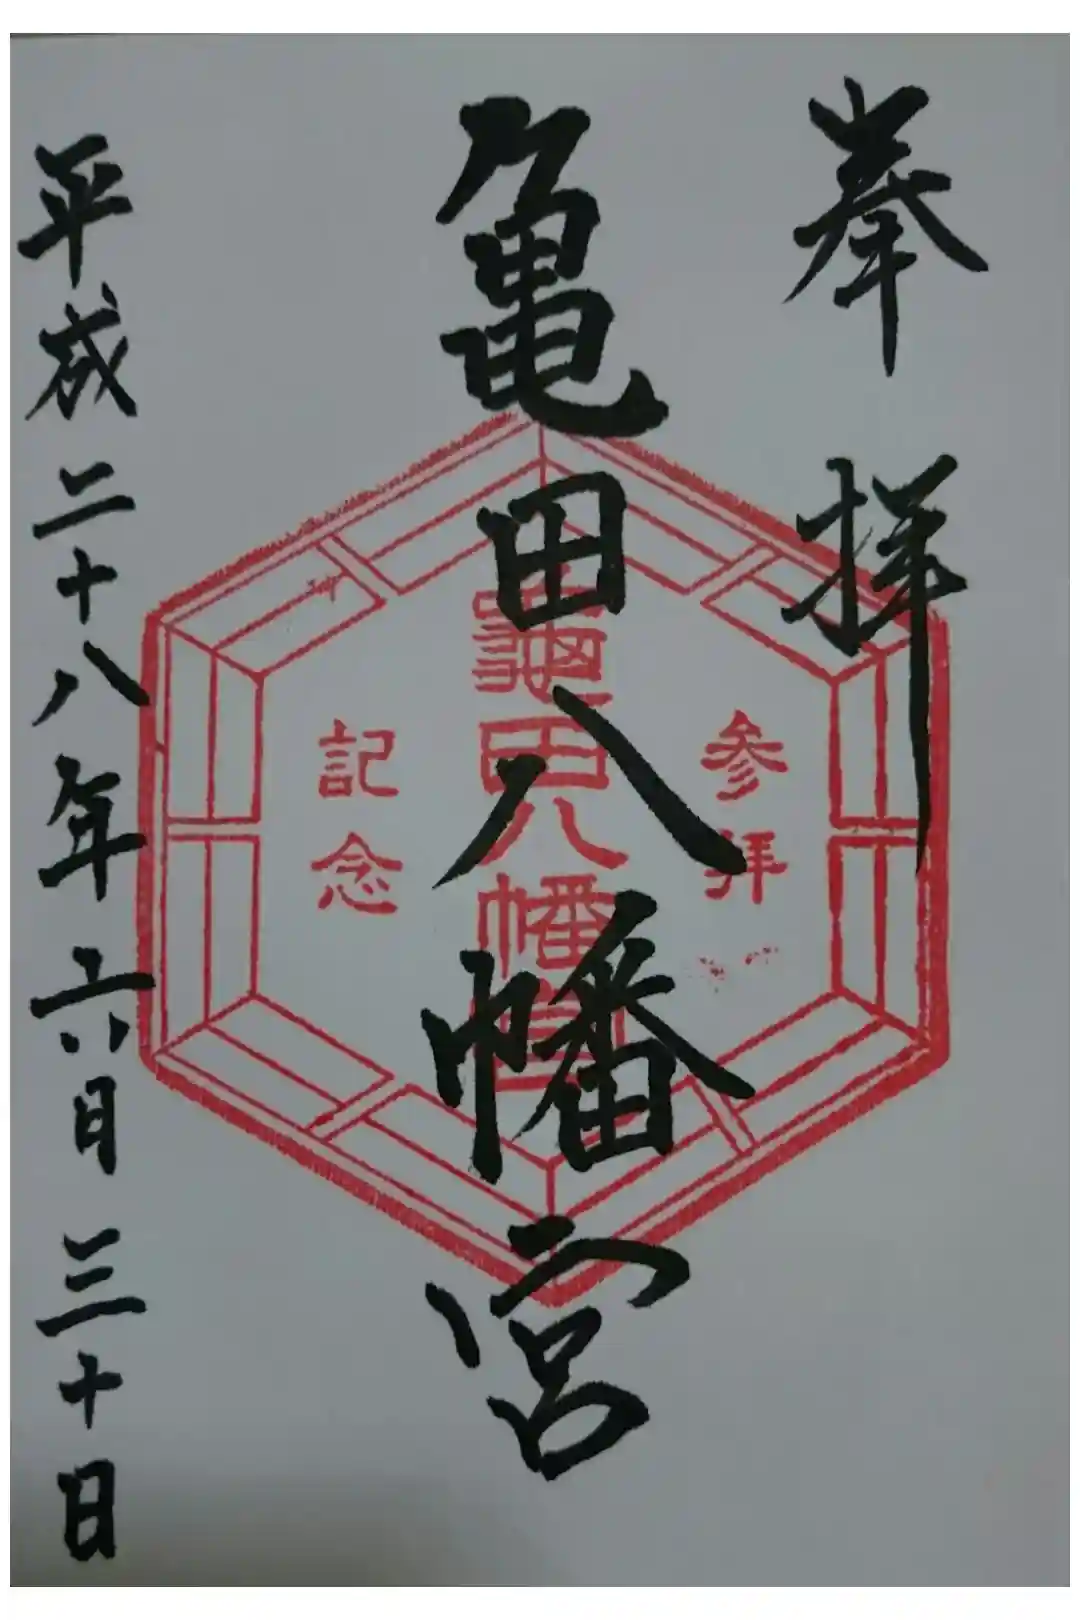 奉拝
参拝
亀田八幡宮
龜田八幡宮
記念
平成二十八年六月三十日